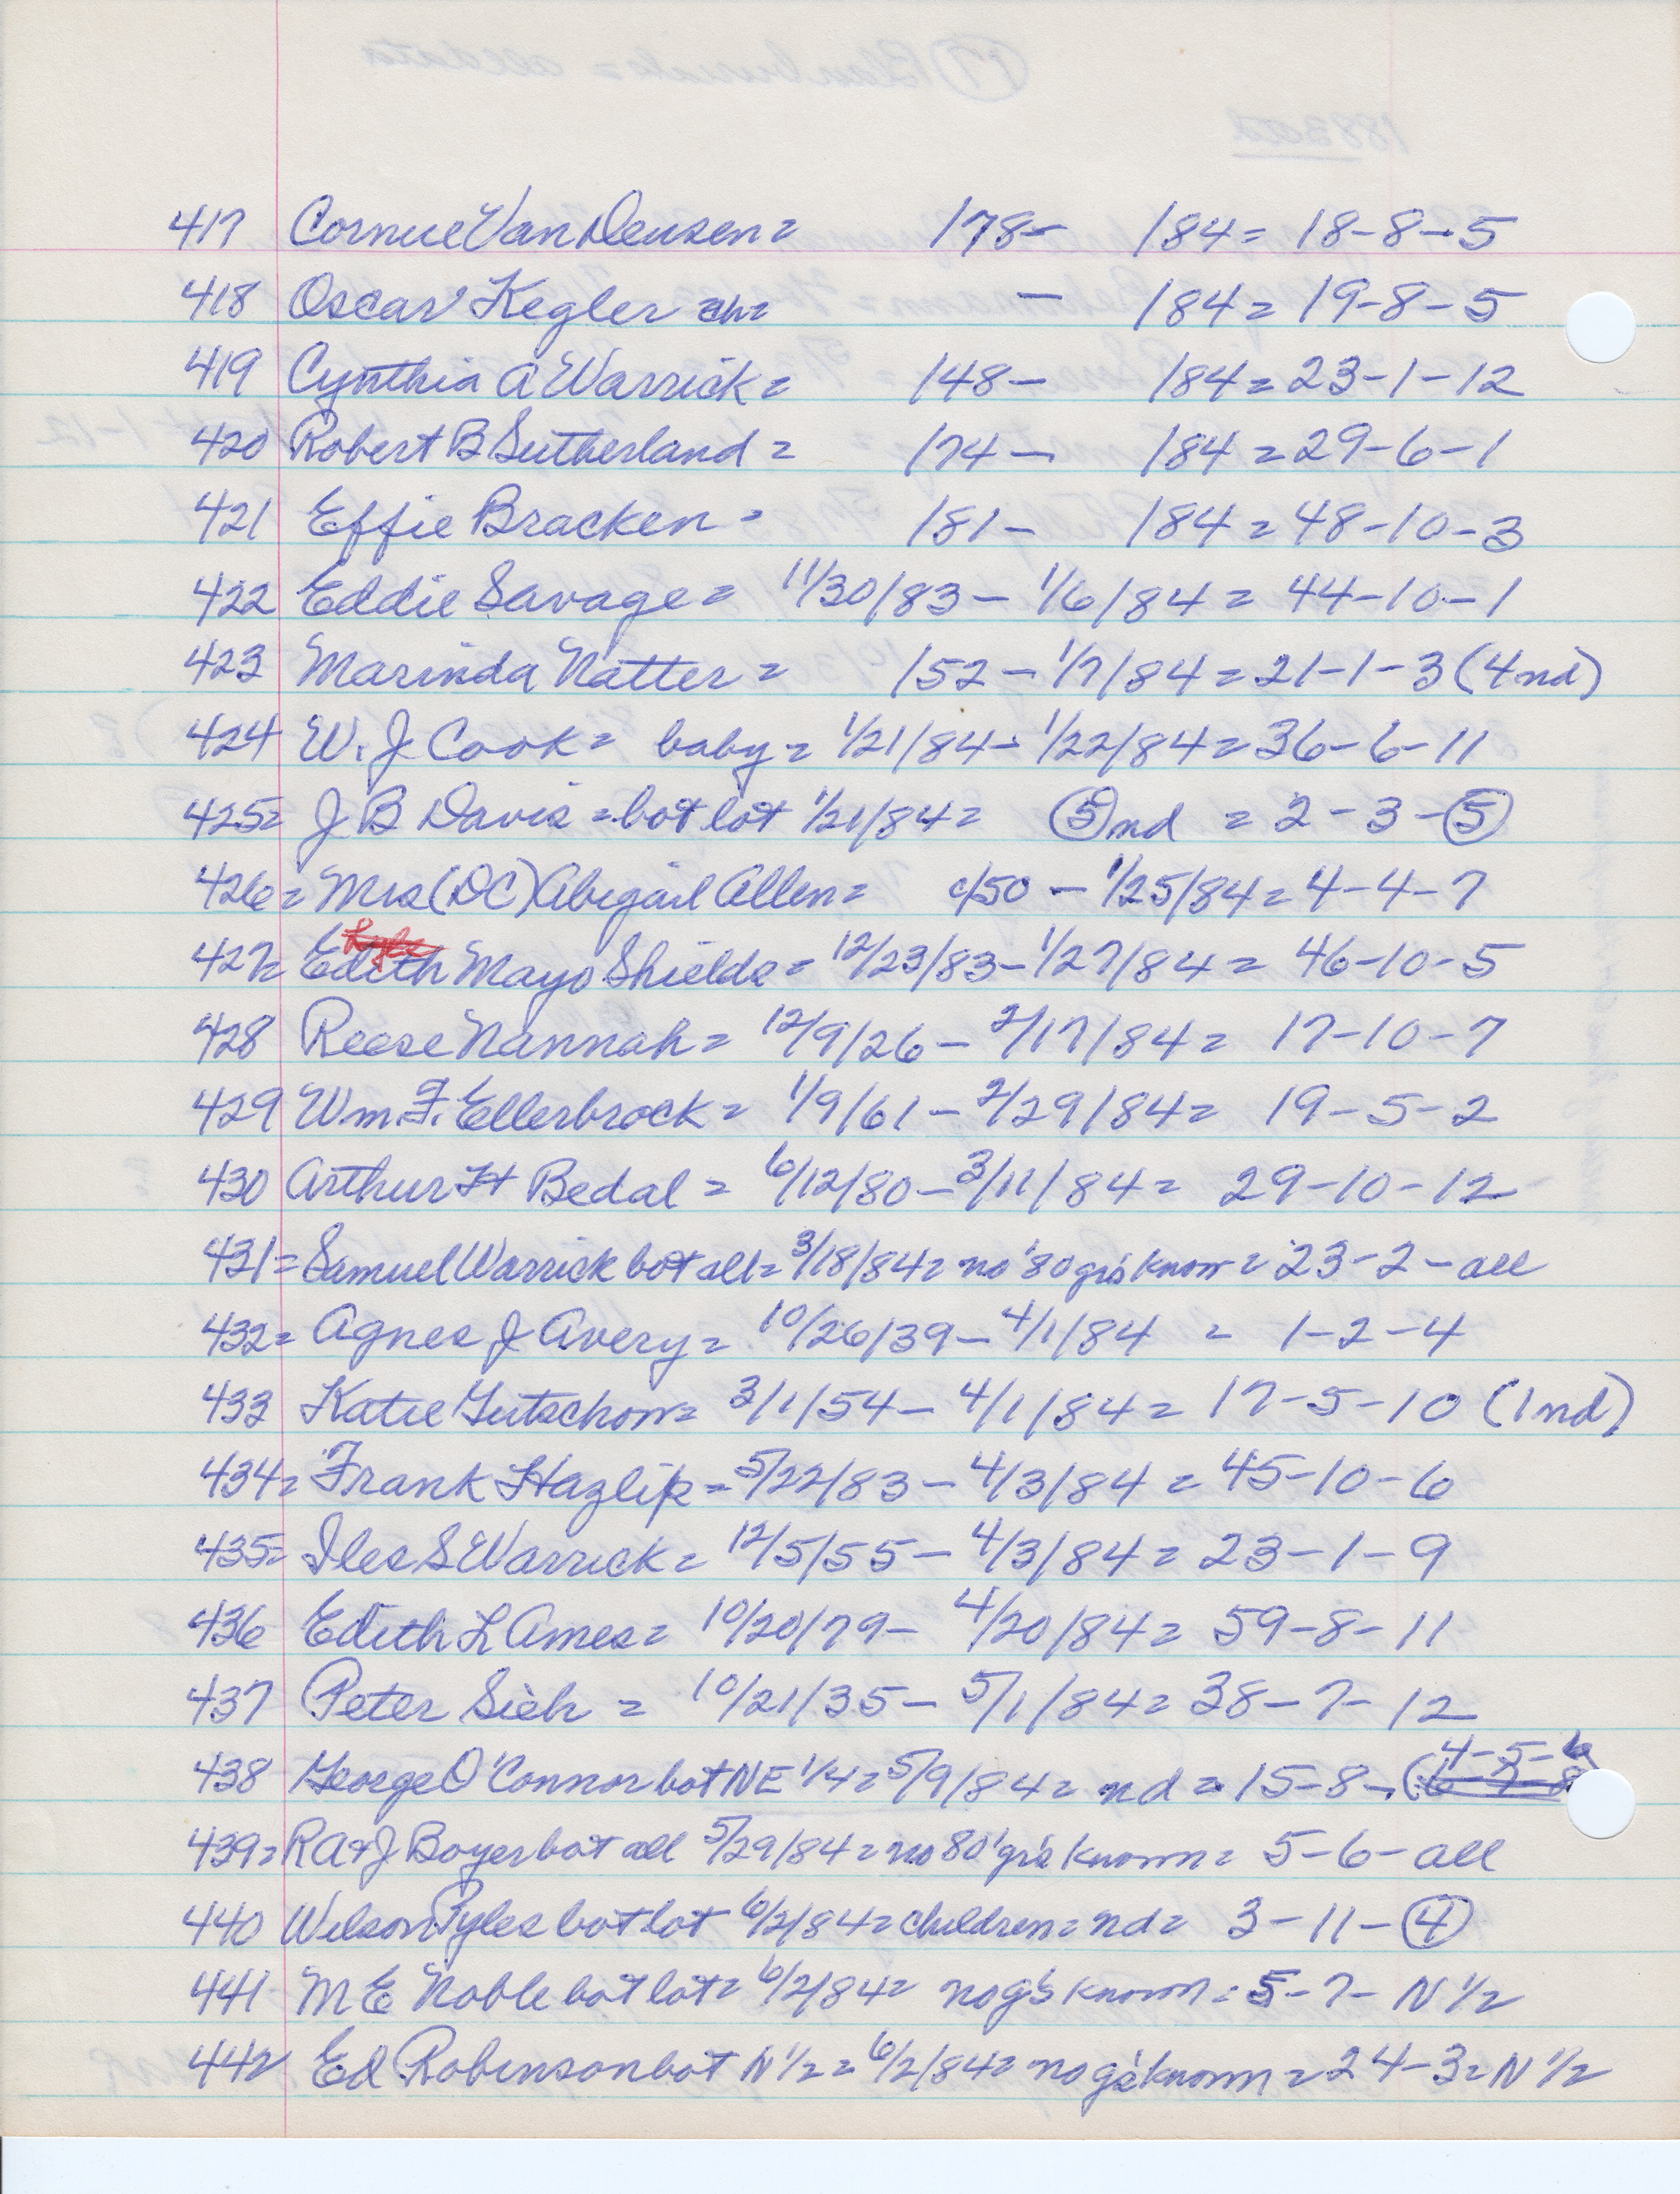 417 Cornue Van Deusen = /78- /84 = 18-8-5
418 Oscar Kegler ch = - /84 = 19-8-5
419 Cynthia A Warrick = /48- /84 = 23-1-12
420 Robert B Sutherland = /74- /84 = 29-6-1
421 Effie Bracken = /81- /84 = 48-10-3
422 Eddie Savage = 11/30/83 - 1/6/84 = 44-10-1
423 Marinda Natter = /52 - 1/7/84 = 21-1-3 (4nd)
424 W. J. Cook = baby = 1/21/84 - 1/22/84 = 36-6-11
425= J B Davis = bot lot 1/21/84 = 5 nd = 2-3-5
426= Mrs (DC) Abigail Allen = c/50 - 1/25/84 = 4-4-7
427= Edith Mayo Shields = 12/23/83 - 1/27/84 = 46-10-5
428 Reese Nannah = 12/9/26 - 2/17/84 = 17-10-7
429 Wm. F. Ellerbrock = 1/9/61 - 2/29/84 = 19-5-2
430 Arthur H Bedal = 6/12/80 - 3/11/84 = 29-10-12
431= Samuel Warrick bot all = 3/18/84 = no '80 gr's know = 23-2-all
432= Agnes J Avery = 10/26/39 - 4/1/84 = 1-2-4
433 Katie Gutschow = 3/1/54 - 4/1/84 = 17-5-10 (1nd)
434= Frank Hazlip = 5/22/83 - 4/3/84 = 45-10-6
435= Iles S Warrick = 12/5/55 - 4/3/84 = 23-1-9
436 Edith L Ames = 10/20/79 - 4/20/84 = 59-8-11
437 Peter Sieh = 10/21/35 - 5/1/84 = 38-7-12
438 George O'Connor bot NE 1/4 = 5/9/84 = nd = 15-8- (4-5-6
439= RA & J Boyer bot all 5/29/84 = no 80' gr's known = 5-6-all
440 Wilson Pyles bot lot 6/2/84 = children = nd = 3-11-4
441 M E Noble bot lot = 6/2/84 = no g's known = 5-7-N 1/2
442 Ed Robinson bot N 1/2 = 6/2/84 = no g's known = 24-3 = N 1/2